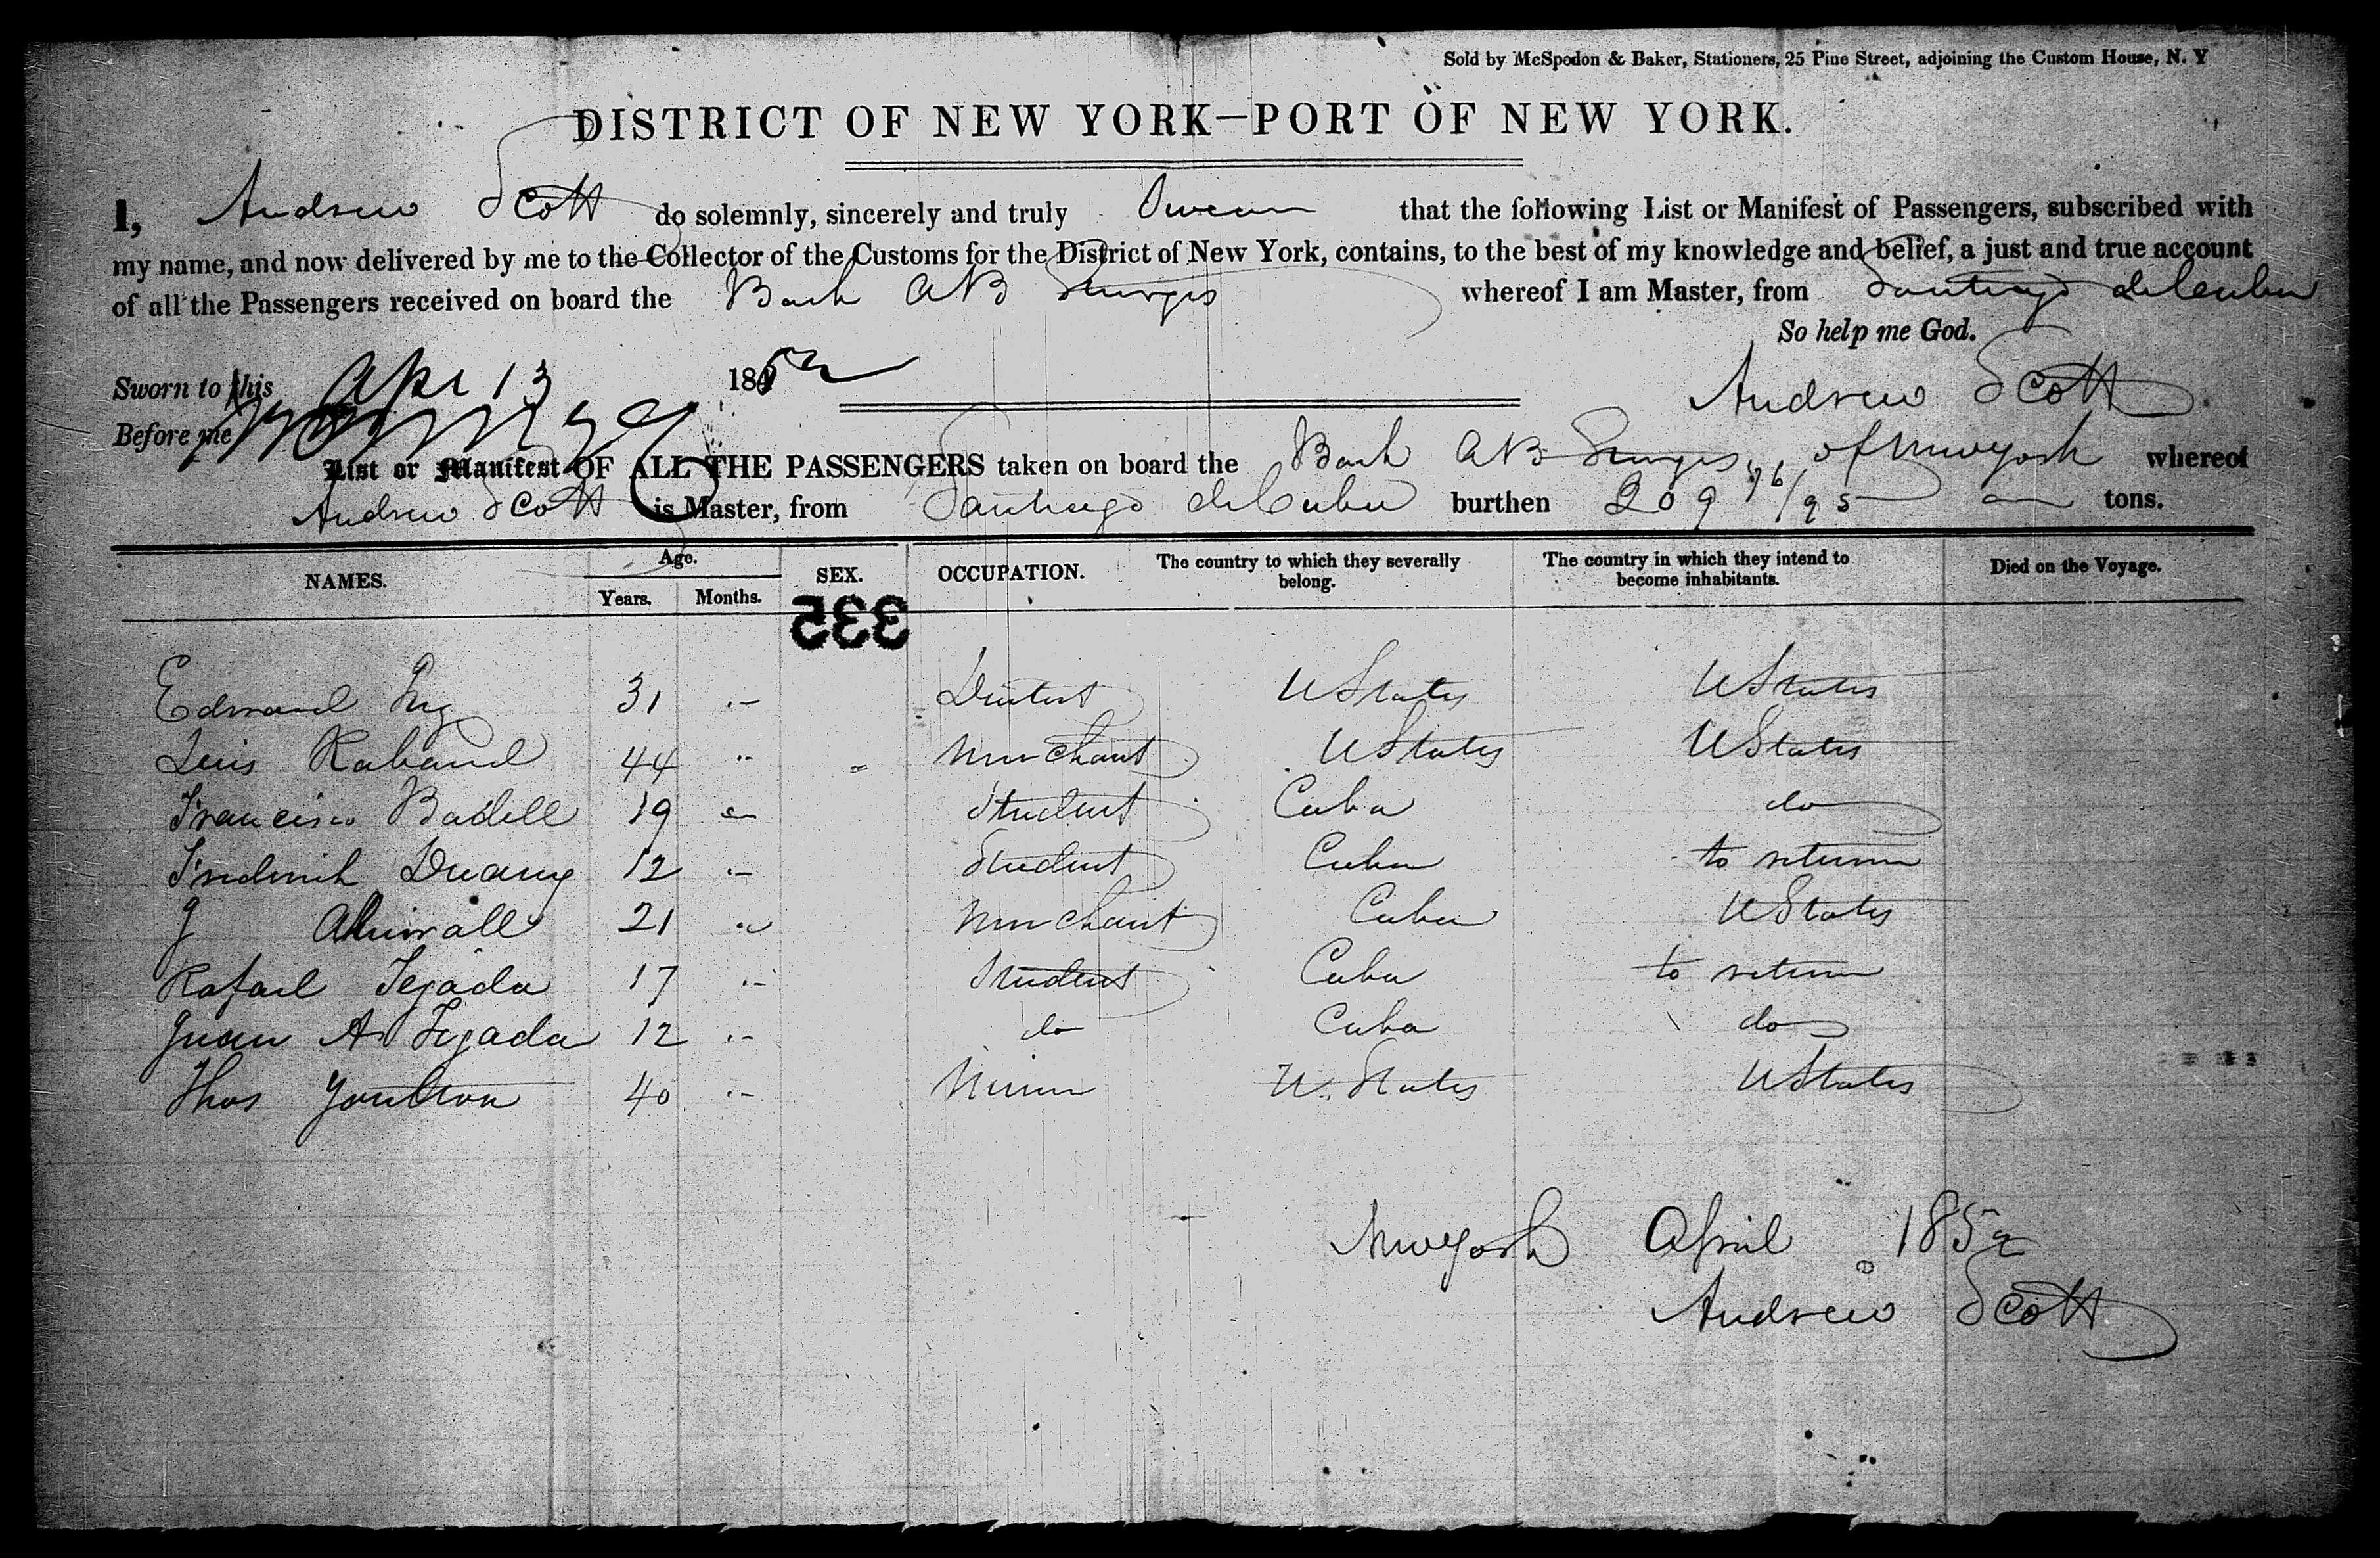 Sold by McSpedon & Baker, Stationers, 25 Pine Street, adjoining the Custom House, N. Y
DISTRICT OF NEW YORK—PORT OF NEW YORK.
I, Andrew Scott do solemnly, sincerely and truly Swear that the following List or Manifest of Passengers, subscribed with
my name, and now delivered by me to the Collector of the Customs for the District of New York, contains, to the best of my knowledge and belief, a just and true account
of all the Passengers received on board the Bark AB Sturges whereof I am Master, from Santiago de Cuba
So help me God.
Sworn to this Apr 13 1852
Andrew Scott
Before me
List or Manifest OF ALL THE PASSENGERS taken on board the Bark AB Sturges of New York whereof
Andrew Scott is Master, from Santiago de Cuba burthen 209 96/95 tons.
NAMES. Age. Years. Months. SEX. OCCUPATION. The country to which they severally belong. The country in which they intend to become inhabitants. Died on the Voyage.
335
Edward 31 Dentist U States U States
Luis Rabaud 44 Merchant U States U States
Francisco Badell 19 Student Cuba do
Frederick Duany 12 Student Cuba to return
J 21 Merchant Cuba U States
Rafael Tejada 17 Student Cuba to return
Juan A Tejada 12 do Cuba do
Thos Youlton 40 Miner U. States U States
New York April 1852
Andrew Scott